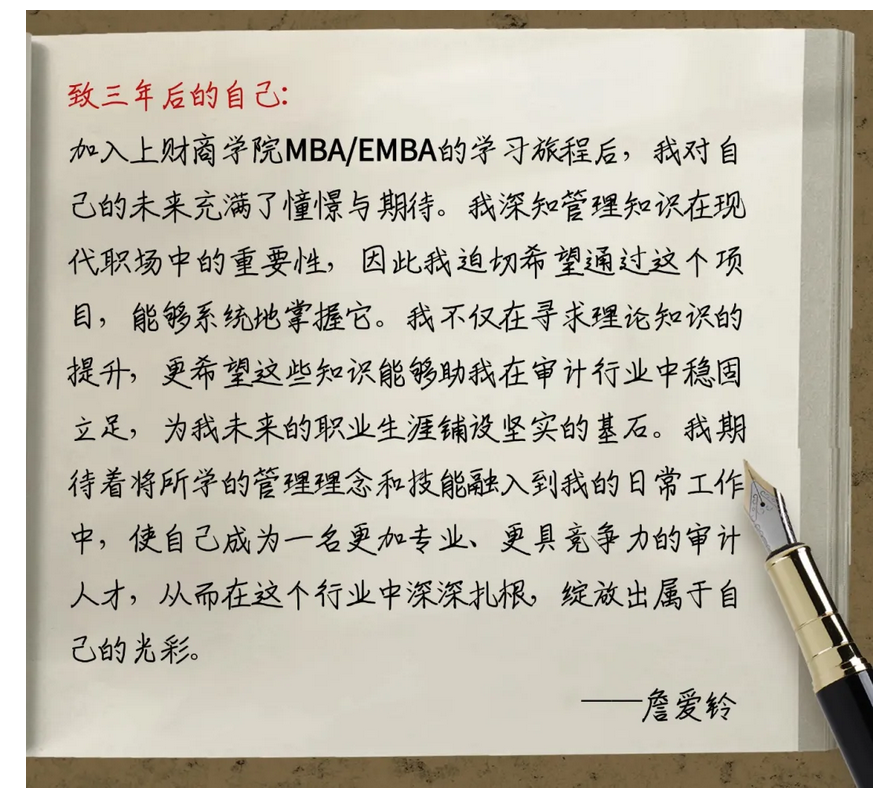 致三年后的自己：
加入上财商学院MBA/EMBA的学习旅程后，我对自
己的未来充满了憧憬与期待。我深知管理知识在现
代职场中的重要性，因此我迫切希望通过这个项
目，能够系统地掌握它。我不仅在寻求理论知识的
提升，更希望这些知识能够助我在审计行业中稳固
立足，为我未来的职业生涯铺设坚实的基石。我期
待着将所学的管理理念和技能融入到我的日常工作
中，使自己成为一名更加专业、更具竞争力的审计
人才，从而在这个行业中深深扎根，绽放出属于自
己的光彩。
——詹爱铃